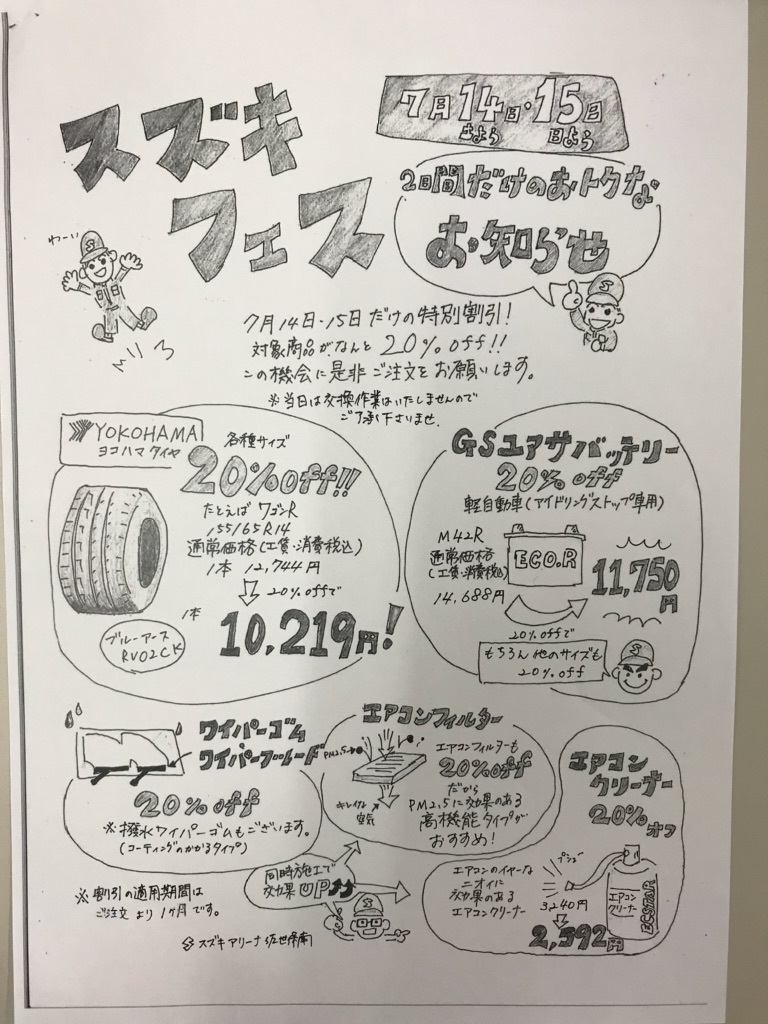 スズキ
フェス
7月14日・15日
土よう 日よう
2日間だけのおトクな
お知らせ
わーい
7月14日・15日だけの特別割引！
対象商品がなんと20%off!!
この機会に是非ご注文をお願いします。
※当日は交換作業はいたしませんので
ご了承下さいませ。
YOKOHAMA
ヨコハマタイヤ
各種サイズ
20%off!!
たとえば ワゴンR
155/65R14
通常価格(工賃・消費税込)
1本 12,744円
20%offで
1本
10,219円！
ブルーアース
RV02CK
GSユアサバッテリー
20%off
軽自動車(アイドリングストップ車用)
M42R
通常価格
(工賃・消費税込)
14,688円
ECO.R
11,750円
20%offで
もちろん他のサイズも
20%off
ワイパーゴム
ワイパーブレード
20%off
※撥水ワイパーゴムもございます。
(コーティングのかかるタイプ)
エアコンフィルター
PM2.5
キレイな
空気
エアコンフィルターも
20%off
だから
PM2.5に効果のある
高機能タイプが
おすすめ！
エアコン
クリーナー
20%オフ
エアコンのイヤーな
ニオイに
効果のある
エアコンクリーナー
プシュー
3,240円
2,592円
エアコン
クリーナー
ECSTAR
同時施工で
効果UP
※割引の適用期間は
ご注文より1ヶ月です。
スズキアリーナ佐世保南